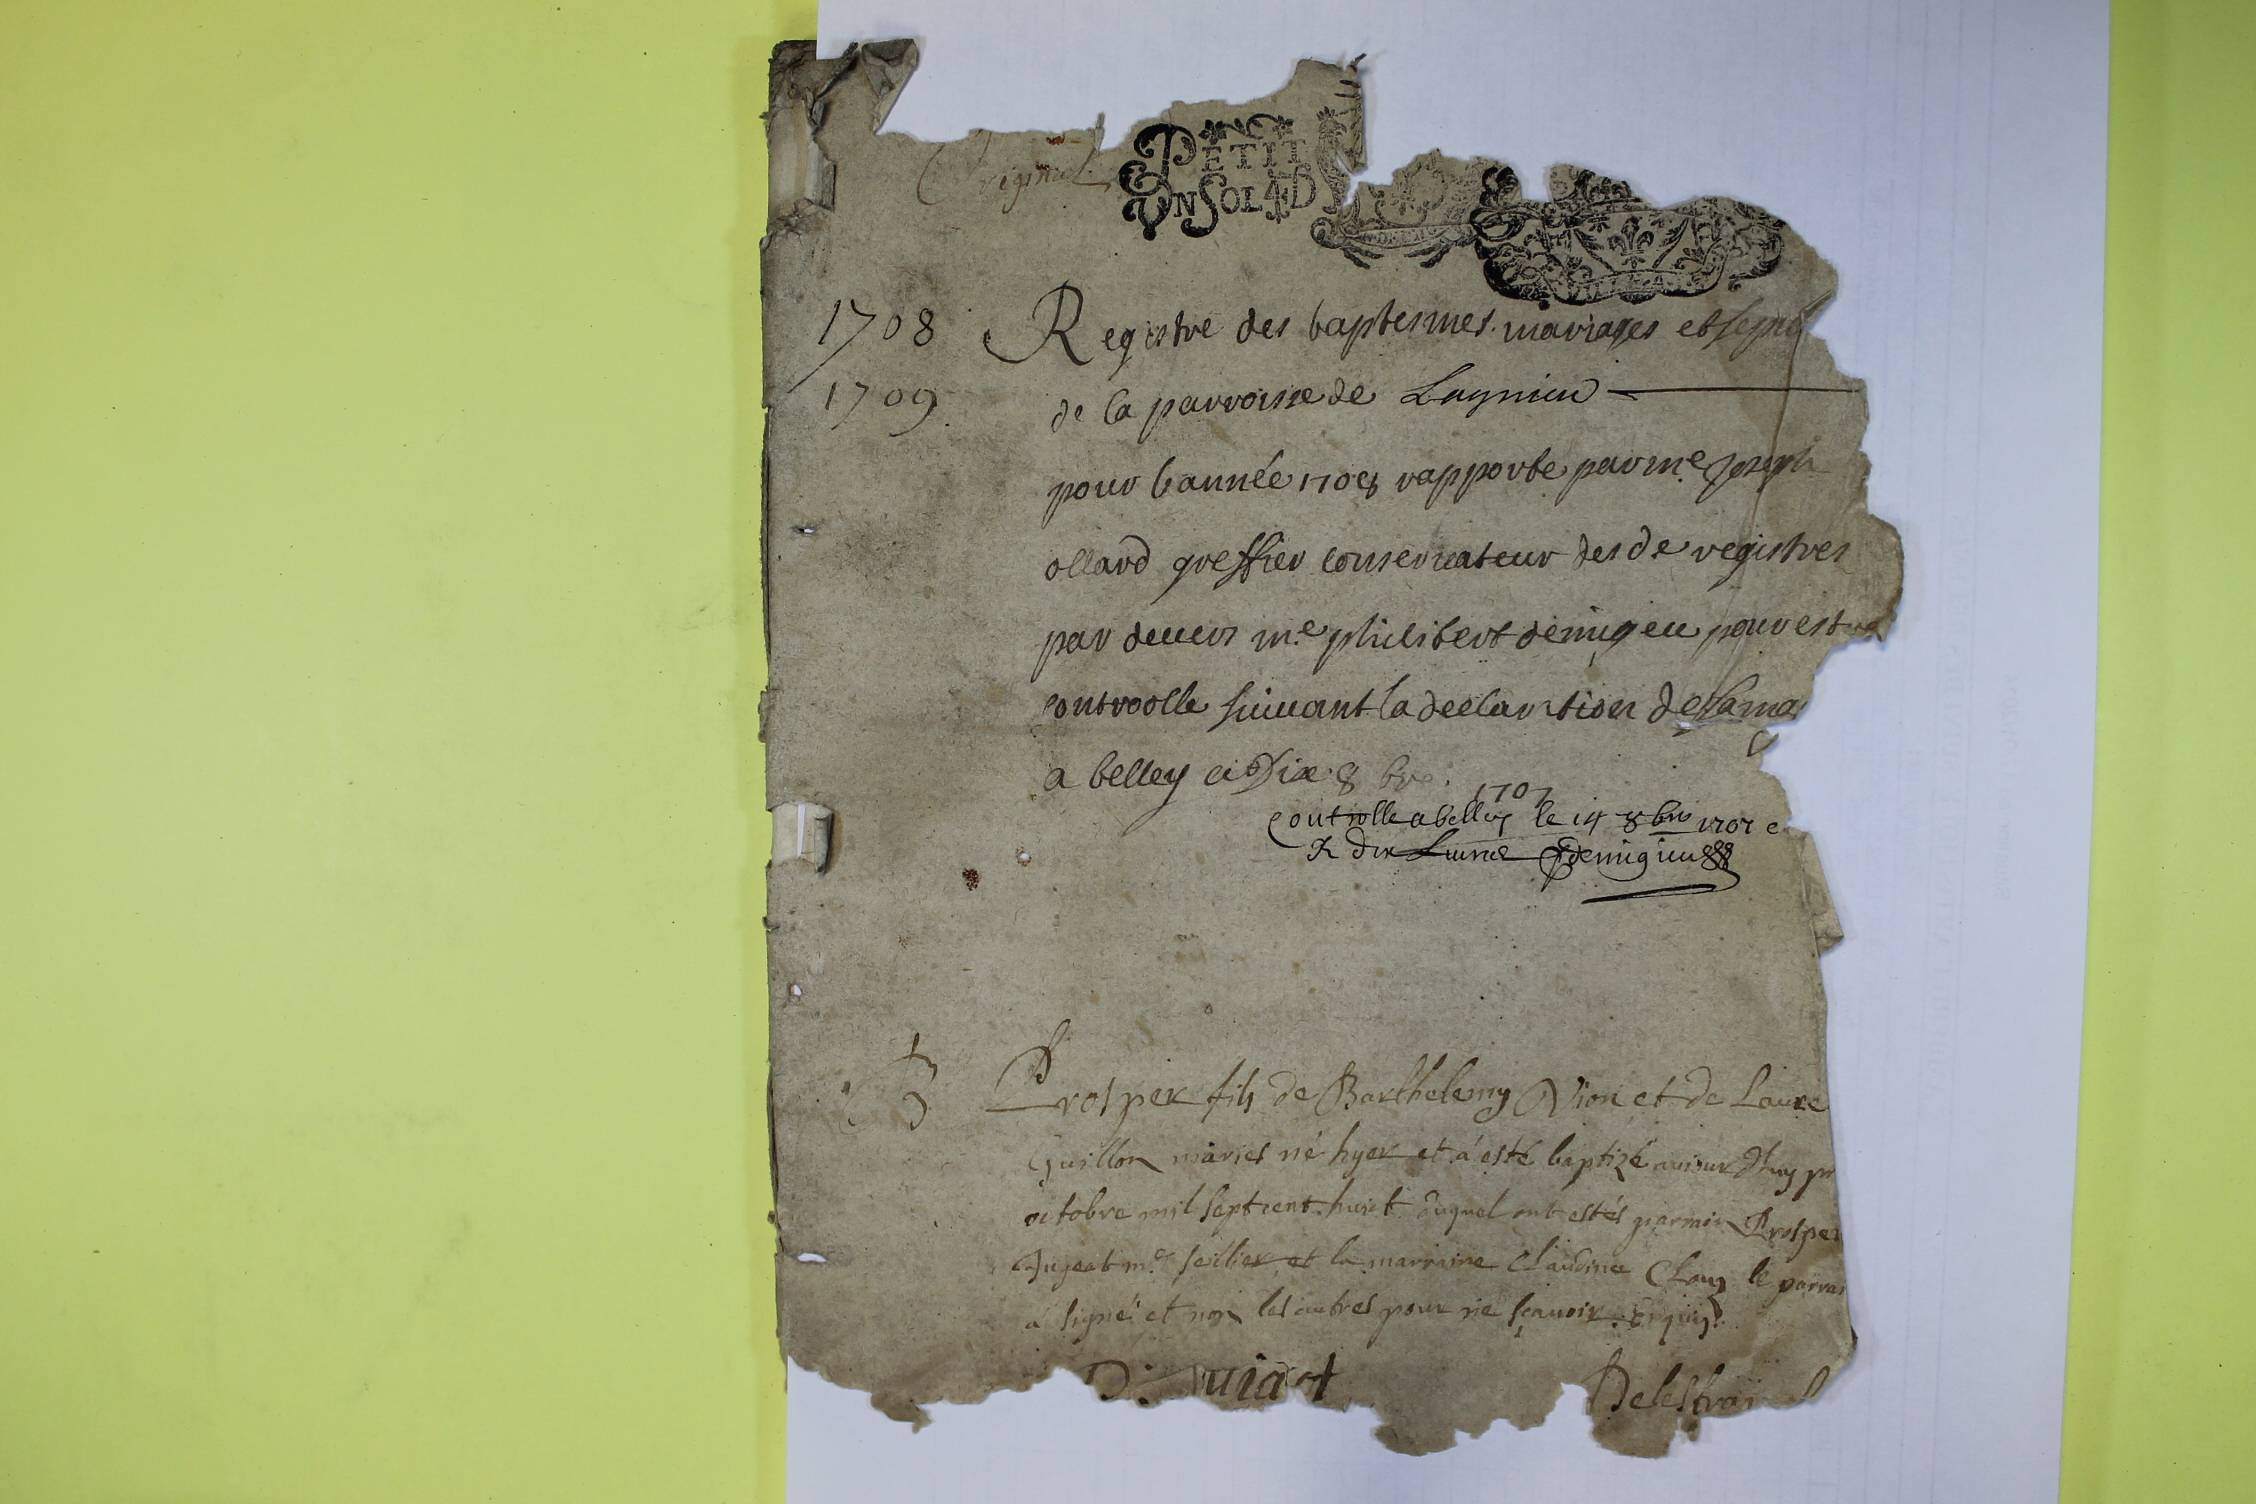 Original
PETIT
VN SOL 4 D
1708 Registre des baptesmes mariages et sepul
1709 de la parroisse de Lagnieu
pour l'année 1708 rapporté par me Joseph
ollard greffier conservateur des de registres
par devers me philibert demigieu pour estre
controolle suivant la declaration de sa ma
a belley ce dix 8 bre 1707
Controlle a belley le 14 8bre 1707
R dix livres Demigieu
Prosper fils de Barthelemy Vion et de Laure
Guillon mariés né hyer et a esté baptizé aujourd'huy pr
octobre mil sept cent huict duquel ont estés parrain Prosper
Jugeat me sellier et la marraine Claudine le parrai
a signé et non les autres pour ne sçavoir Enquis
Delestra